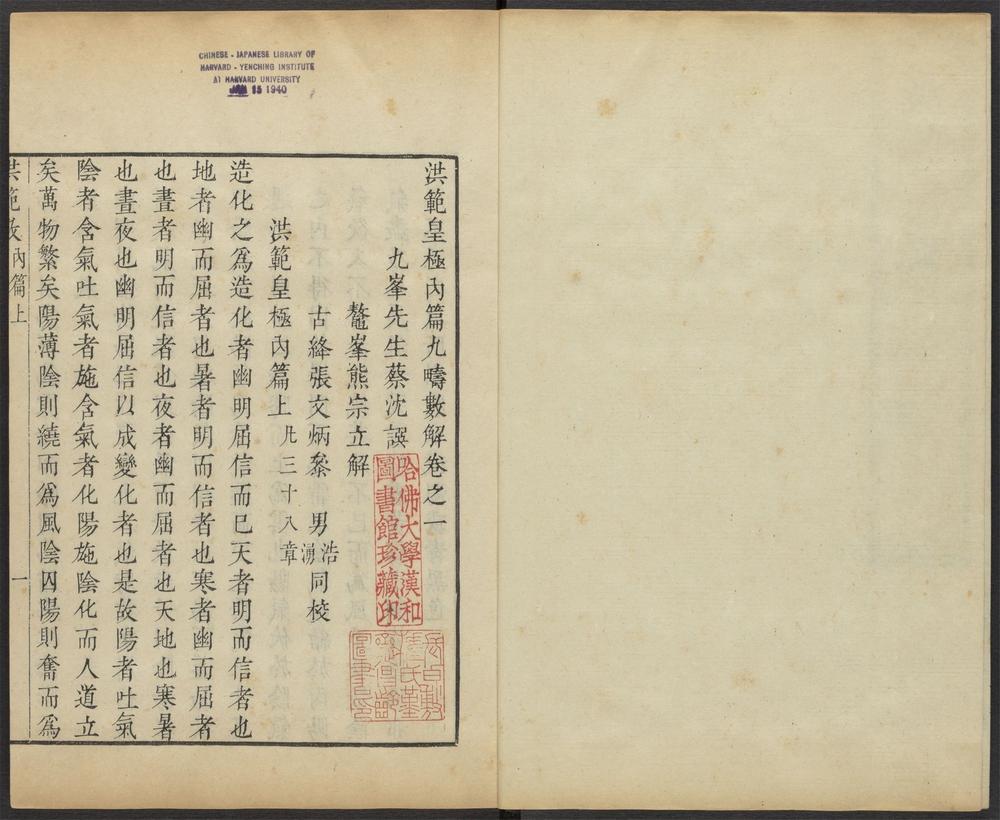 CHINESE - JAPANESE LIBRARY OF
HARVARD - YENCHING INSTITUTE
AT HARVARD UNIVERSITY
JAN 15 1940
洪範皇極內篇九疇數解卷之一
九峯先生蔡沈譔
鼇峯熊宗立解
古絳張文炳叅 男浩瀬同校
洪範皇極內篇上 凡三十八章
造化之爲造化者幽明屈信而已天者明而信者也
地者幽而屈者也暑者明而信者也寒者幽而屈者
也晝者明而信者也夜者幽而屈者也天地也寒暑
也晝夜也幽明屈信以成變化者也是故陽者吐氣
陰者含氣吐氣者施含氣者化陽施陰化而人道立
矣萬物繁矣陽薄陰則繞而爲風陰囚陽則奮而爲
洪範數內篇上
一
哈佛大學漢和
圖書館珍藏印